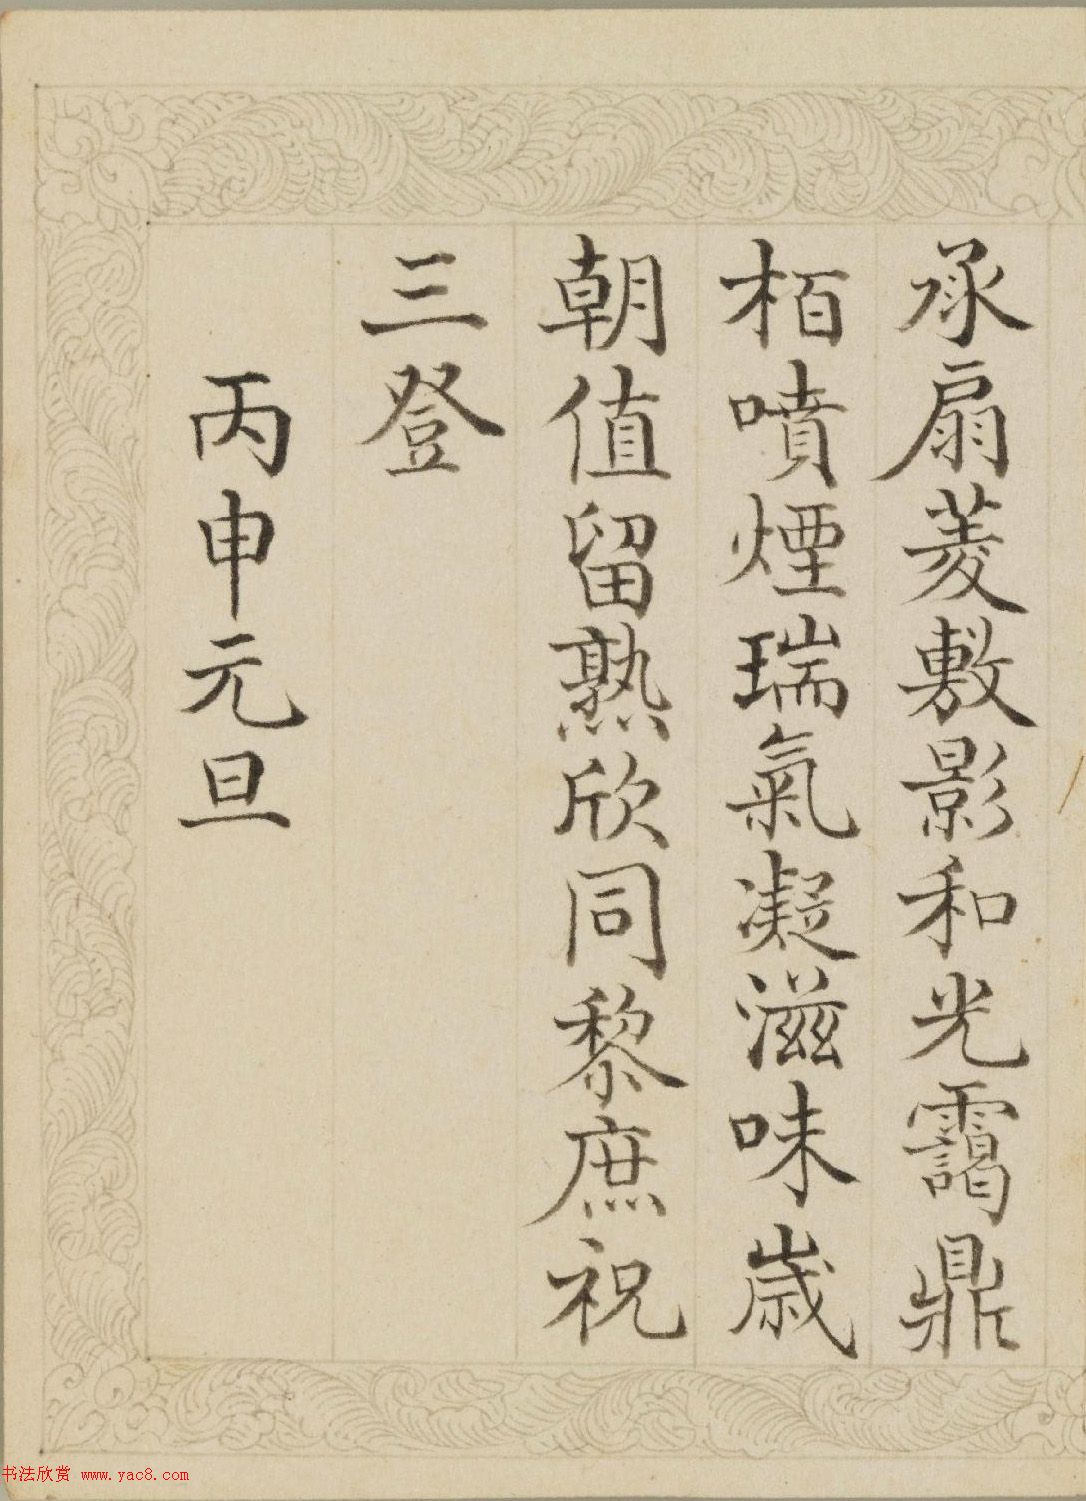 承扇菱敷影和光靄鼎
栢噴煙瑞氣凝滋味歲
朝值留熟欣同黎庶祝
三登
丙申元旦
书法欣赏 www.yac8.com